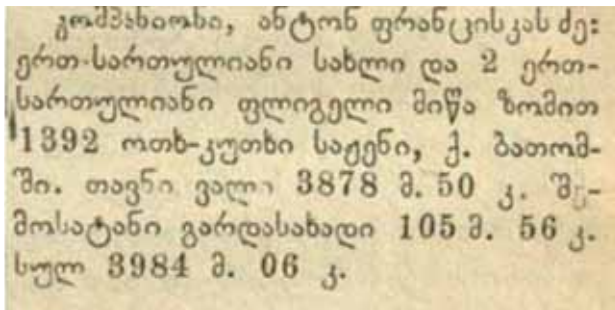 კომპანიონი, ანტონ ფრანცისკას ძე:
ერთ-სართულიანი სახლი და 2 ერთ-
სართულიანი ფლიგელი მიწა ზომით
1392 ოთხ-კუთხი საჟენი, ქ. ბათომ-
ში. თავნი ვალი 3878 მ. 50 კ. შე-
მოსატანი გარდასახადი 105 მ. 56 კ.
სულ 3984 მ. 06 კ.